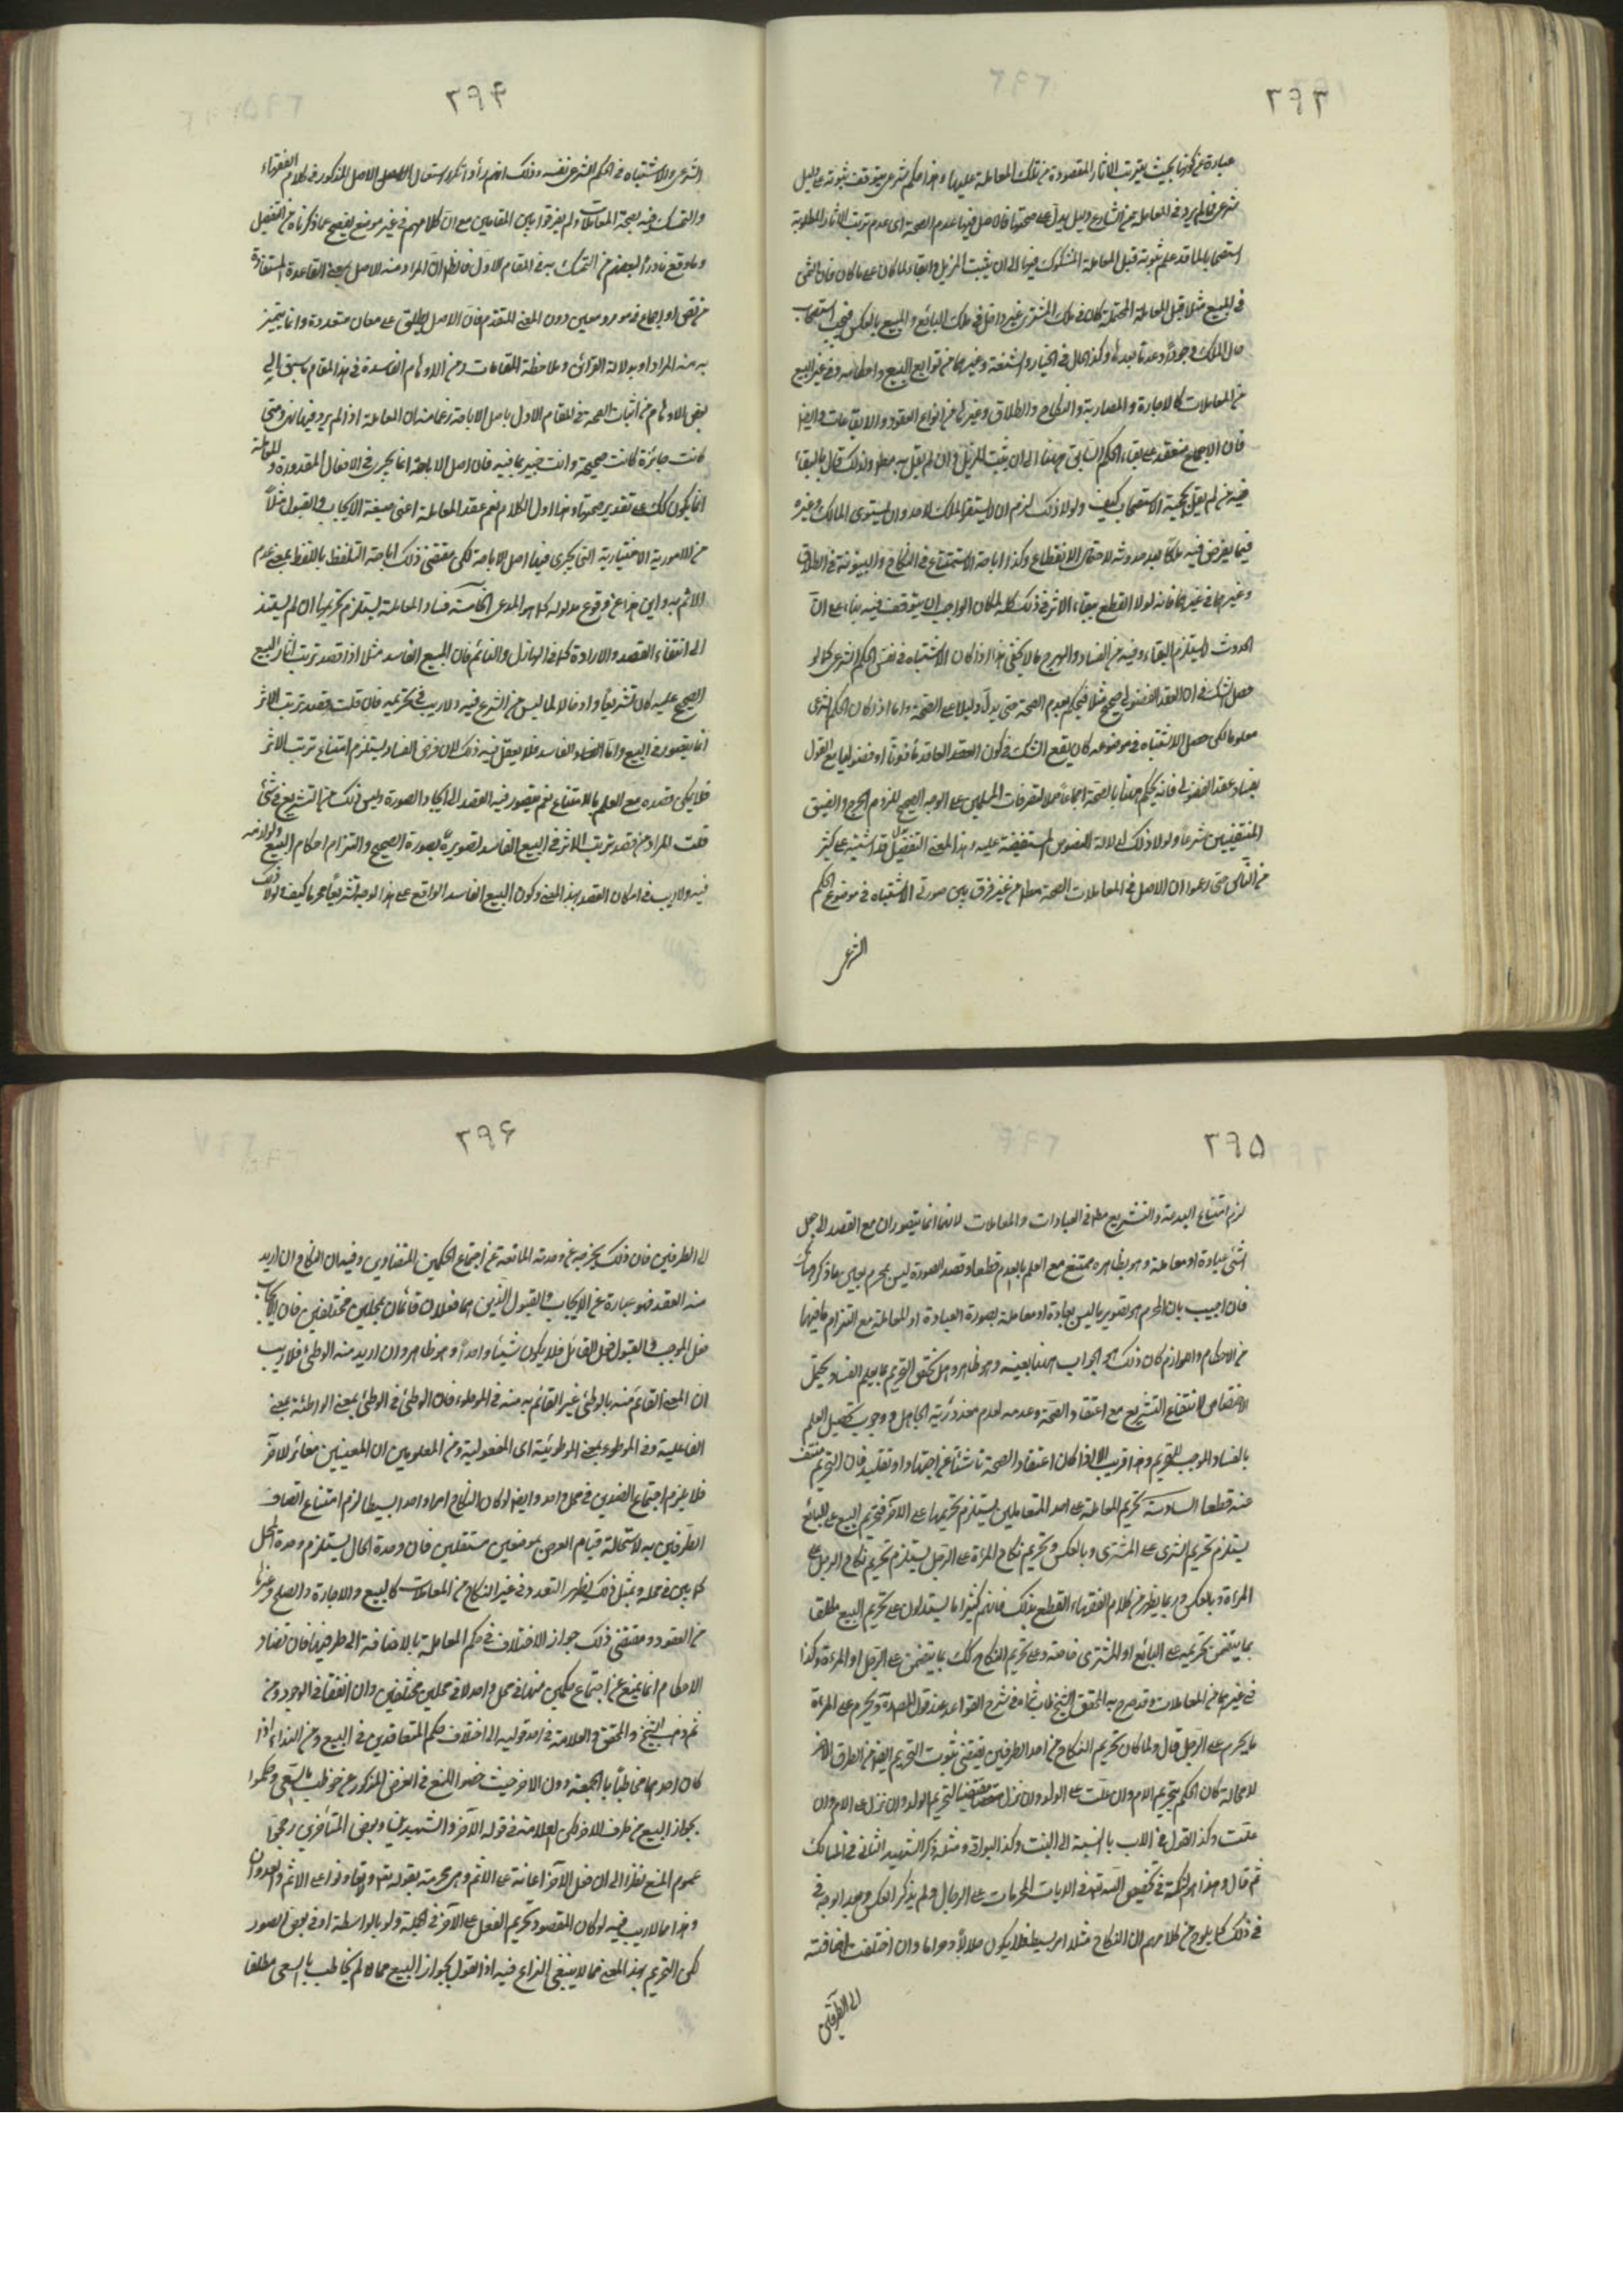 ٢٩٣
عبارة عن كونها بحيث يترتب الاثار المقصودة من تلك المعاملة عليها وهذا حكم شرعى يتوقف ثبوته على دليل
شرعى فما لم يرد فى المعاملة من الشارع دليل يدل على صحتها فالاصل فيها عدم الصحة اى عدم ترتب الاثار المطلوبة
استصحابا لما قد علم ثبوته قبل المعاملة المشكوك فيها الى ان يثبت المزيل وابقاء لما كان على ما كان فان الثمن
فى المبيع مثلا قبل المعاملة المحتملة كان فى ملك المشترى غير داخل فى ملك البائع والمبيع بالعكس فيجب استصحاب
حال الملك وجودا وعدما بعدها وكذا الحال فى الخيار والشفعة وغيرهما من توابع البيع واحكامه وفى غير البيع
من المعاملات كالاجارة والمضاربة والنكاح والطلاق وغيرها من انواع العقود والايقاعات وايضا
فان الاجماع منعقد على بقاء الحكم السابق هيهنا الى ان يثبت المزيل وان لم نقل به مطلقا ولذلك قال بالبقاء
فيه من لم يقل بحجية الاستصحاب كيف ولولا ذلك لزم ان لا يستقر الملك لاحد وان يستوى المالك وغيره
فيما يفرض فيه ملكا بعد حدوثه لاحتمال الانقطاع وكذا اباحة الاستمتاع فى النكاح والبينونة فى الطلاق
وغيرهما فى غيرهما فانه لولا القطع ببقاء الاثر فى ذلك كله لكان الواجب ان يتوقف فيه بناء على ان
الحدوث لا يستلزم البقاء وفيه من الفساد والهرج ما لا يخفى هذا اذا كان الاشتباه فى نفس الحكم الشرعى كما لو
حصل الشك فى ان العقد الفضولى صحيح مثلا فيحكم بعدم الصحة حتى يدل دليل على الصحة واما اذا كان الحكم الشرعى
معلوما لكن حصل الاشتباه فى موضوعه كان يقع الشك فى كون العقد العاقد مأذونا او فضوليا مع القول
بفساد عقد الفضولى فانه يحكم هيهنا بالصحة اجماعا حملا لتصرفات المسلمين على الوجه الصحيح للزوم الحرج والضيق
المنفيين شرعا ولولا ذلك لدلالة النصوص المستفيضة عليه وهذا المعنى التفصيل قد اشتبه على كثير
من الناس حتى زعموا ان الاصل فى المعاملات الصحة مطلقا من غير فرق بين صورتى الاشتباه فى موضوع الحكم
الشرعى
٢٩٤
الشرعى والاشتباه فى الحكم الشرعى نفسه وذلك انهم رأوا تكرر استعمال الاصل المذكور فى كلام الفقهاء
والتمسك فيه بصحة المعاملات ولم يفرقوا بين المقامين مع ان كلامهم فى غير موضع يفصح عما ذكرناه من التفصيل
وما وقع نادرا لبعضهم من التمسك به فى المقام الاول فالظاهر ان المراد منه الاصل بمعنى القاعدة المستفادة
من نص او اجماع فى مورد معين دون المعنى المتقدم فان الاصل يطلق على معان متعددة وانما يتميز
به منه المراد او بدلالة القرائن وملاحظة المقامات ومن الاوهام الفاسدة فى هذا المقام ما سبق الى
بعض الاوهام من اثبات الصحة فى المقام الاول باصل الاباحة زعما منه ان المعاملة اذا لم يرد فيها نهى ومتى
كانت جائزة كانت صحيحة وانت خبير بما فيه فان اصل الاباحة انما يجرى فى الافعال المقدورة والمعاملة
انما يكون كك على تقدير صحتها وهذا اول الكلام نعم عقد المعاملة اعنى صيغة الايجاب والقبول مثلا
من الامور ية الاختيارية التى يجرى فيها اصل الاباحة لكن مقتضى ذلك اباحة التلفظ باللفظ بمعنى عدم
الاثم به واين هذا من وقوع مدلوله كما هو المدعى الخامسة فساد المعاملة يستلزم تحريمها ان لم يستند
الى انتفاء القصد والارادة كما فى الهازل والنائم فان البيع الفاسد مثلا اذا قصد ترتب اثار البيع
الصحيح عليه كان تشريعا وادخالا لما ليس من الشرع فيه ولا ريب فى تحريمه فان قلت قصد ترتب الاثر
انما يتصور فى البيع واما الفاسد فلا يعقل فيه ذلك لان فرض الفساد يستلزم امتناع ترتب الاثر
فلا يمكن قصده مع العلم بالامتناع نعم يتصور فيه القصد الى ايجاد الصورة وليس ذلك من التشريع فى شئ
قلت المراد من قصد ترتب الاثر فى البيع الفاسد تصويره بصورة الصحيح والتزام احكام البيع ولوازمه
فيه ولا ريب فى امكان القصد بهذا المعنى وكون البيع الفاسد الواقع على هذا الوجه تشريعا محرما كيف ولولا ذلك
٢٩٥
لزم امتناع البدعة والتشريع مطلقا فى العبادات والمعاملات لانهما انما يتصوران مع القصد الى جعل
الشئ عبادة او معاملة وهو بظاهره ممتنع مع العلم بالعدم قطعا وقصد الصورة ليس بمحرم بعين ما ذكر هناك
فان اجيب بان المحرم هو تصوير ما ليس بعبادة او معاملة بصورة العبادة او المعاملة مع التزام ما فيها
من الاحكام واللوازم كان ذلك هو الجواب هيهنا بعينه وهو ظاهر وهل يختص التحريم بما يعلم الفساد يحتمل
الاختصاص لانتفاء التشريع مع اعتقاد الصحة وعدمه لعدم معذورية الجاهل ووجوب تحصيل العلم
بالفساد الموجب للتحريم وهذا قريب الا اذا كان اعتقاد الصحة ناشئا عن اجتهاد او تقليد فان التحريم منتف
عنه قطعا السادسة تحريم المعاملة على احد المتعاملين يستلزم تحريمها على الاخر فتحريم البيع على البائع
يستلزم تحريم الشرى على المشترى وبالعكس وتحريم نكاح المراة على الرجل يستلزم تحريم نكاح الرجل على
المراة وبالعكس وربما يظهر من كلام الفقهاء القطع بذلك فانهم كثيرا ما يستدلون على تحريم البيع مطلقا
بما يتضمن تحريمه على البائع او المشترى خاصة وعلى تحريم النكاح كك بما يتضمن على الرجل او المرءة وكذا
فى غيرهما من المعاملات وقد صرح به المحقق الشيخ على فى شرح القواعد عند قول المصنف ويحرم على المرءة
ما يحرم على الرجل قال ولما كان تحريم النكاح من احد الطرفين يقتضى ثبوت التحريم ايضا من الطرف الاخر
لا محالة كان الحكم بتحريم الام وان علت على الولد وان نزل مقتضيا لتحريم الولد وان نزل على الام وان
علت وكذا القول فى الاب بالنسبة الى البنت وكذا البواقى ومثله ذكر الشهيد الثانى فى المسالك
ثم قال وهذا هو النكتة فى تخصيص الله تعالى فى الايات المحرمات على الرجال ولم يذكر العكس ولعل الوجه فى
فى ذلك كما يلوح من كلامهم ان النكاح مثلا امر بسيط فلا يكون حلالا وحراما وان اختلفت اضافته
الى الطرفين
٢٩٦
الى الطرفين فان ذلك لا يخرجه عن وحدته المانعة عن اجتماع الحكمين المتضادين وفيه ان النكاح ان اريد
منه العقد فهو عبارة عن الايجاب والقبول الذين هما فعلان قائمان بمحلين مختلفين فان الايجاب
فعل الموجب والقبول فعل القابل فلا يكون شيئا واحدا وهو ظاهر وان اريد منه الوطئ فلا ريب
ان المعنى القائم منه بالواطئ غير القائم به منه فى الموطوء فان الوطئ فى الواطئ بمعنى الواطئية بمعنى
الفاعلية وفى الموطوء بمعنى الموطوئية اى المفعولية ومن المعلوم ان المعنيين مغائر للاخر
فلا يلزم اجتماع الضدين فى محل واحد وايضا لو كان النكاح امرا واحدا بسيطا لزم امتناع اتصاف
الطرفين به لاستحالة قيام العرض بموضعين مستقلين فان وحدة الحال يستلزم وحدة المحل
كما بين فى محله وبمثل ذلك يظهر التعدد فى غير النكاح من المعاملات كالبيع والاجارة والصلح وغيرها
من العقود ومقتضى ذلك جواز الاختلاف فى حكم المعاملة بالاضافة الى طرفيها فان تضاد
الاحكام انما يمنع عن اجتماع حكمين منها فى محل واحد لا فى محلين مختلفين وان اتفقا فى الوجود ومن
ثم ذهب الشيخ والمحقق والعلامة فى احد قوليه الى اختلاف حكم المتعاقدين فى البيع وحين النداء اذا
كان احدهما مخاطبا بالجمعة دون الاخر حيث خصوا المنع فى الفرض المذكور بمن خوطب بالسعى وحكموا
بجواز البيع من طرف الاخر لكن العلامة فى قوله الاخر والشهيدين وبعض المتأخرين رجحوا
عموم المنع نظرا الى ان فعل الاخر اعانة على الاثم وهى محرمة بقوله تعالى ولا تعاونوا على الاثم والعدوان
وهذا مما لا ريب فيه لو كان المقصود تحريم الفعل على الاخر فى الجملة ولو بالواسطة او فى بعض الصور
لكن التحريم بهذا المعنى مما لا ينبغى النزاع فيه اذ القول بجواز البيع ممن لم يخاطب بالسعى مطلقا